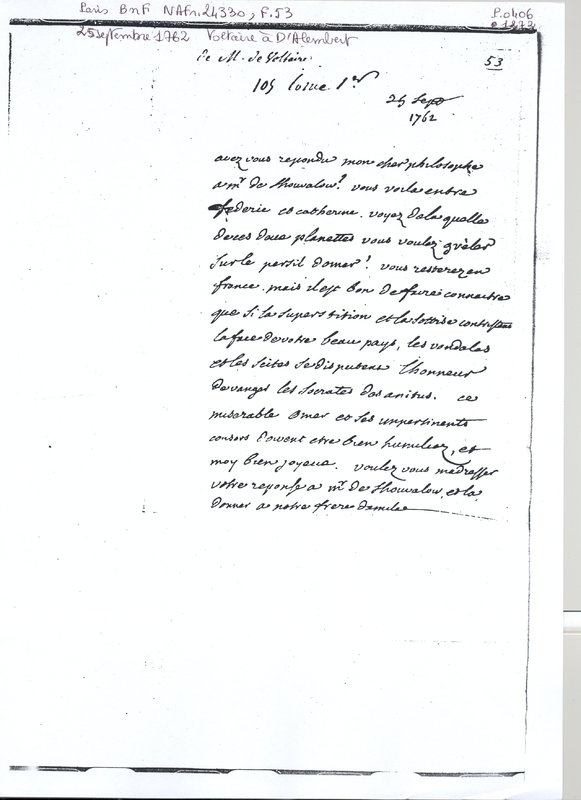 Paris BnF NAfr. 24330, F. 53
P. 0406
25 septembre 1762 Voltaire à D'Alembert
De M. de Voltaire
53
25 Sept
1762
avez vous repondu mon cher philosophe
a mr de Shouvalow? vous voila entre
federic et catherine. voyez dela quelle
de ces deux planettes vous voulez grêler
sur le persil domer! vous resterez en
france. mais il est bon de faire connaitre
que si la superstition et la sottise contristent
la face de votre beau pays, les vandales
et les scites se disputent l'honneur
de vanger les socrates des anitus. ce
miserable omer et ses impertinents
consors doivent etre bien humiliez, et
moy bien joyeux. voulez vous madresser
votre reponse a mr de Shouvalow, et la
donner a notre frere damila